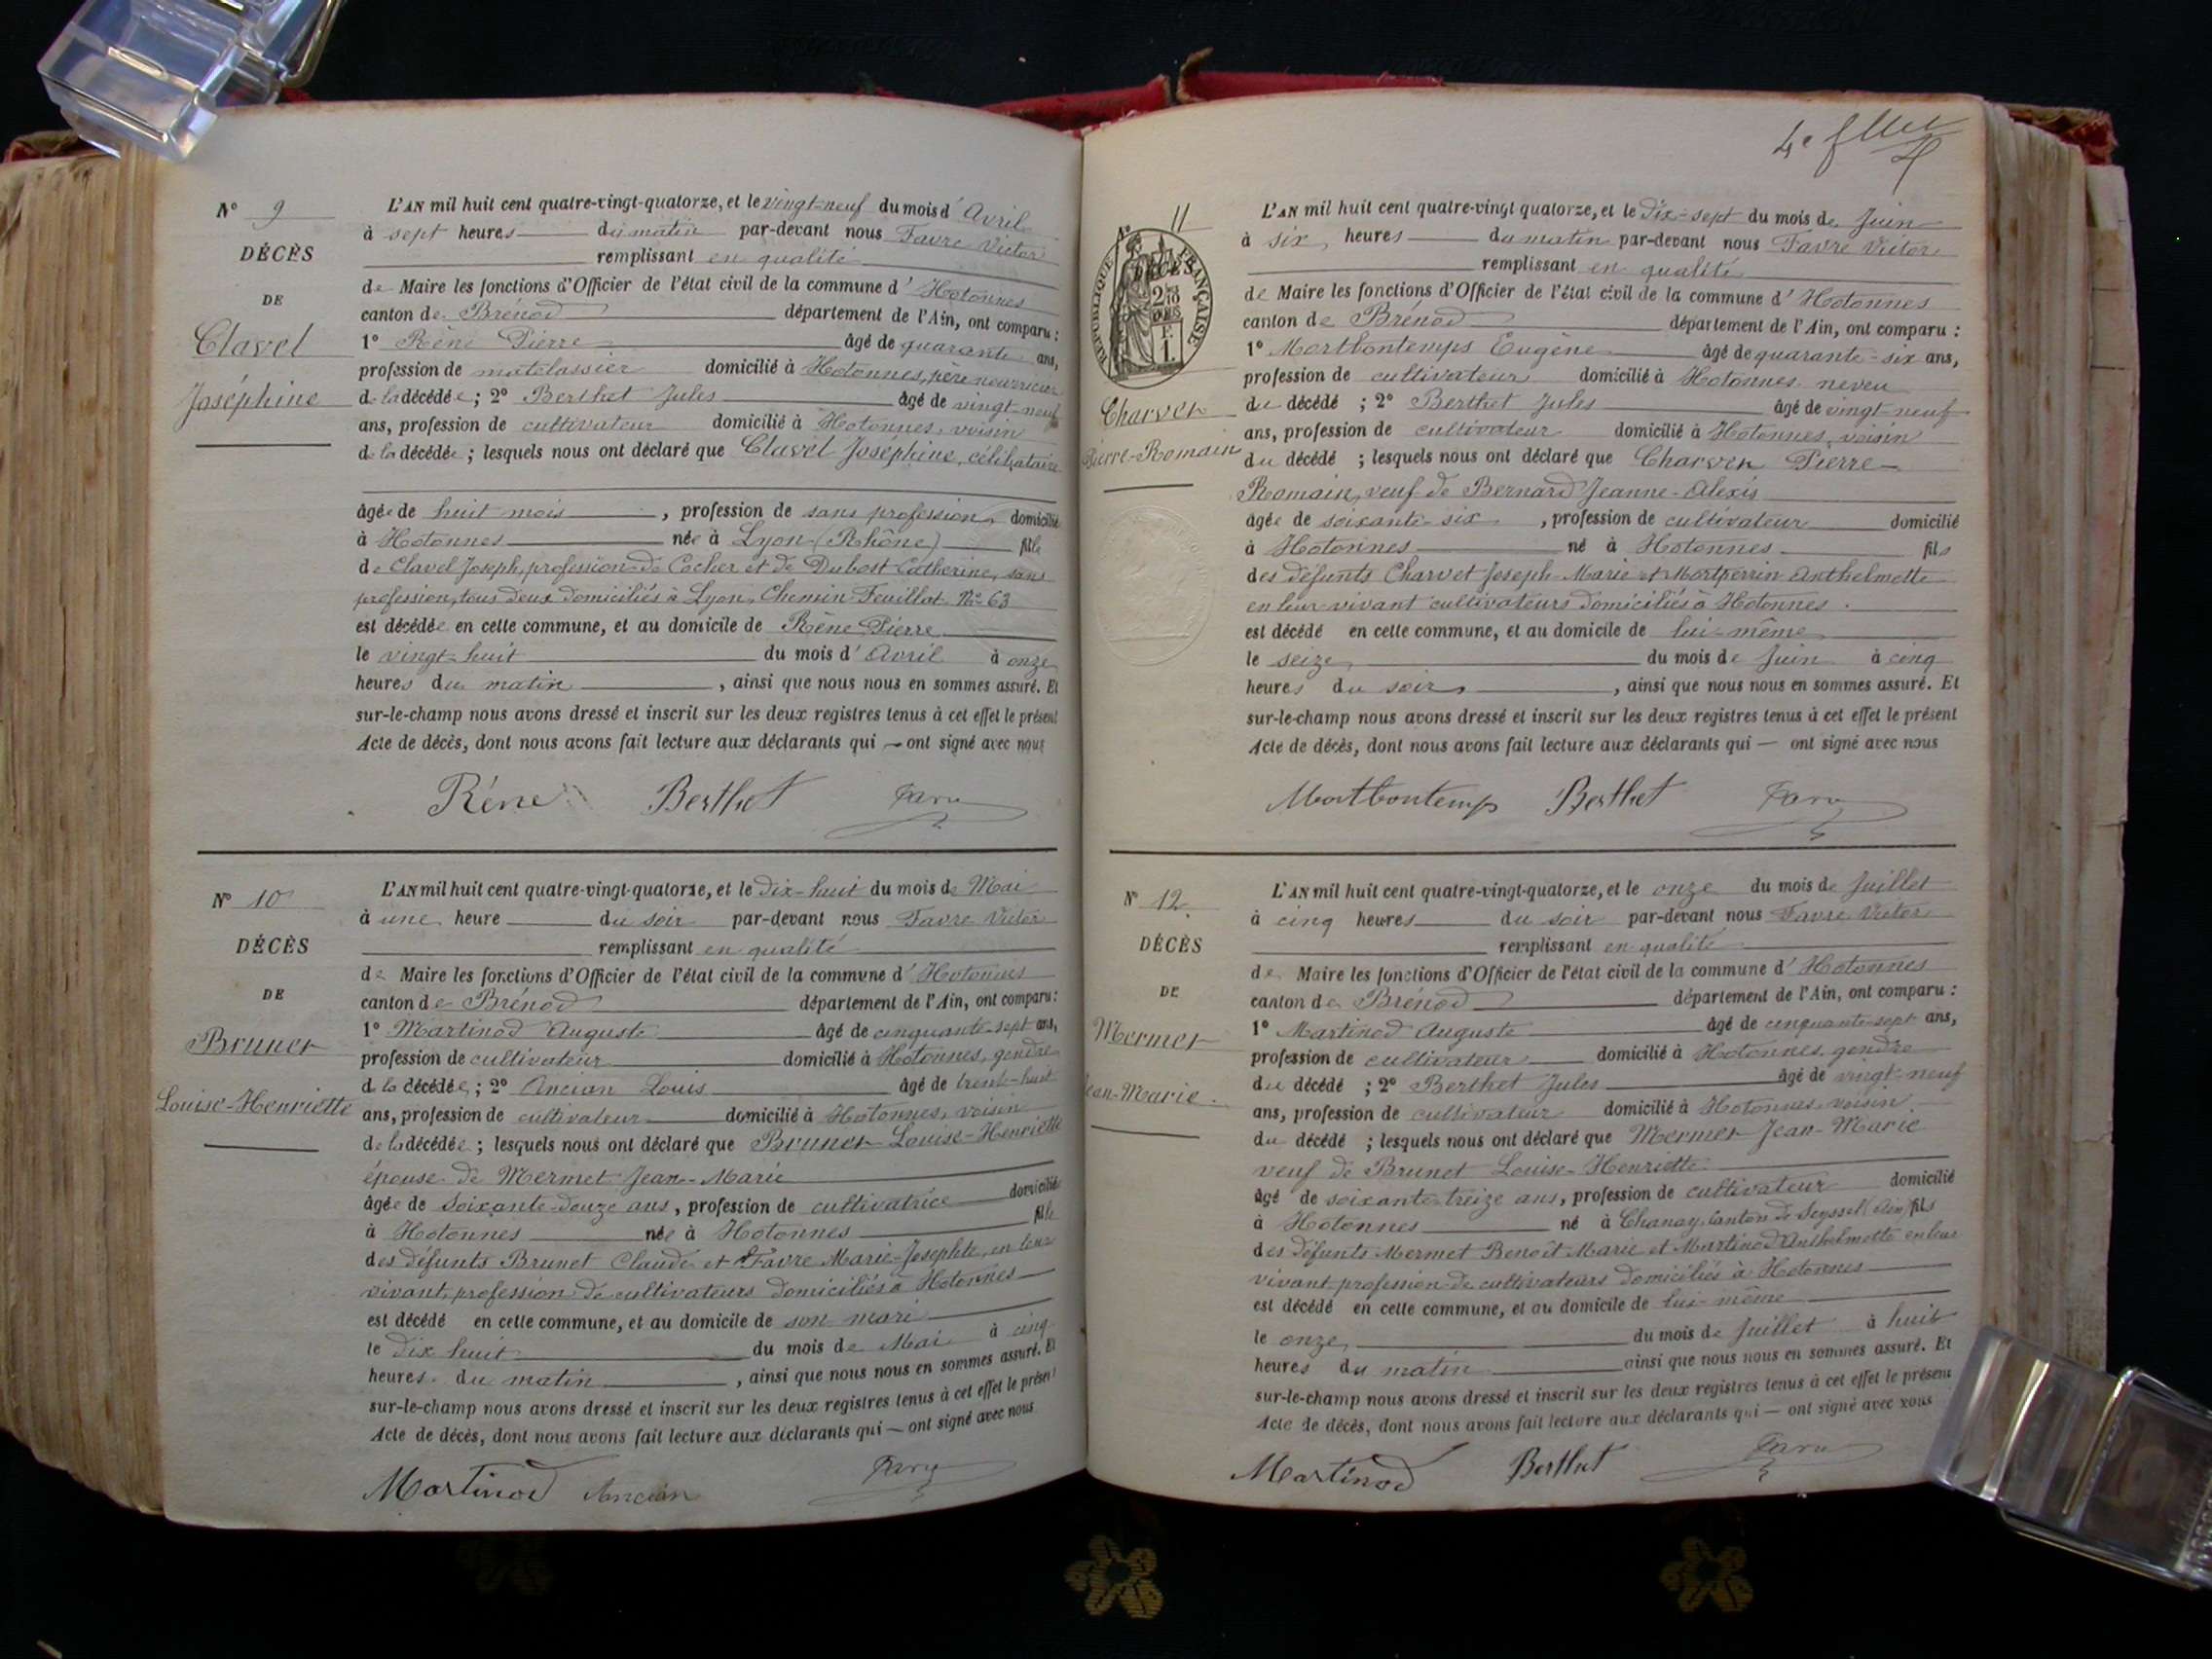 N° 9
DÉCÈS
DE
Clavel
Joséphine
L'AN mil huit cent quatre-vingt-quatorze, et le vingt-neuf du mois d'Avril
à sept heures du matin par-devant nous Favre Victor
remplissant en qualité
de Maire les fonctions d'Officier de l'état civil de la commune d'Hotonnes
canton de Brénod département de l'Ain, ont comparu :
1° Rène Pierre âgé de quarante ans,
profession de matelassier domicilié à Hotonnes, père nourricier
de la décédée ; 2° Berthet Jules âgé de vingt-neuf
ans, profession de cultivateur domicilié à Hotonnes, voisin
de la décédée ; lesquels nous ont déclaré que Clavel Joséphine, célibataire
âgée de huit mois, profession de sans profession domicilié
à Hotonnes née à Lyon (Rhône) fille
de Clavel Joseph, profession de Cocher et de Dubost Catherine, sans
profession, tous deux domiciliés à Lyon, Chemin Feuillat N° 63
est décédée en cette commune, et au domicile de Rène Pierre
le vingt-huit du mois d'Avril à onze
heures du matin, ainsi que nous nous en sommes assuré. Et
sur-le-champ nous avons dressé et inscrit sur les deux registres tenus à cet effet le présent
Acte de décès, dont nous avons fait lecture aux déclarants qui — ont signé avec nous
Réne Berthet Favre
N° 10
DÉCÈS
DE
Brunet
Louise-Henriette
L'AN mil huit cent quatre-vingt-quatorze, et le dix-huit du mois de Mai
à une heure du soir par-devant nous Favre Victor
remplissant en qualité
de Maire les fonctions d'Officier de l'état civil de la commune d'Hotonnes
canton de Brénod département de l'Ain, ont comparu :
1° Martinod Auguste âgé de cinquante-sept ans,
profession de cultivateur domicilié à Hotonnes, gendre
de la décédée ; 2° Ancian Louis âgé de trente-huit
ans, profession de cultivateur domicilié à Hotonnes, voisin
de la décédée ; lesquels nous ont déclaré que Brunet Louise-Henriette
épouse de Mermet Jean-Marie
âgée de soixante-douze ans, profession de cultivatrice domicilié
à Hotonnes née à Hotonnes fille
des défunts Brunet Claude et Favre Marie-Josephte, en leur
vivant, profession de cultivateurs domiciliés à Hotonnes
est décédé en cette commune, et au domicile de son mari
le dix huit du mois de Mai à cinq
heures du matin, ainsi que nous nous en sommes assuré. Et
sur-le-champ nous avons dressé et inscrit sur les deux registres tenus à cet effet le présent
Acte de décès, dont nous avons fait lecture aux déclarants qui — ont signé avec nous
Martinod Ancian Favre
4e
N° 11
RÉPUBLIQUE FRANÇAISE
DÉCÈS
Charvet
Pierre-Romain
L'AN mil huit cent quatre-vingt quatorze, et le dix-sept du mois de Juin
à six heures du matin par-devant nous Favre Victor
remplissant en qualité
de Maire les fonctions d'Officier de l'état civil de la commune d'Hotonnes
canton de Brénod département de l'Ain, ont comparu :
1° Mortbontemps Eugène âgé de quarante-six ans,
profession de cultivateur domicilié à Hotonnes neveu
du décédé ; 2° Berthet Jules âgé de vingt-neuf
ans, profession de cultivateur domicilié à Hotonnes, voisin
du décédé ; lesquels nous ont déclaré que Charvet Pierre-
Romain, veuf de Bernard Jeanne-Alexis
âgée de soixante-six, profession de cultivateur domicilié
à Hotonnes né à Hotonnes fils
des défunts Charvet Joseph-Marie et Mortperrin Anthelmette
en leur vivant cultivateurs domiciliés à Hotonnes.
est décédé en cette commune, et au domicile de lui-même
le seize du mois de Juin à cinq
heures du soir, ainsi que nous nous en sommes assuré. Et
sur-le-champ nous avons dressé et inscrit sur les deux registres tenus à cet effet le présent
Acte de décès, dont nous avons fait lecture aux déclarants qui — ont signé avec nous
Mortbontemps Berthet Favre
N° 12
DÉCÈS
DE
Mermet
Jean-Marie.
L'AN mil huit cent quatre-vingt-quatorze, et le onze du mois de Juillet
à cinq heures du soir par-devant nous Favre Victor
remplissant en qualité
de Maire les fonctions d'Officier de l'état civil de la commune d'Hotonnes
canton de Brénod département de l'Ain, ont comparu :
1° Martinod Auguste âgé de cinquante-sept ans,
profession de cultivateur domicilié à Hotonnes, gendre
du décédé ; 2° Berthet Jules âgé de vingt-neuf
ans, profession de cultivateur domicilié à Hotonnes, voisin
du décédé ; lesquels nous ont déclaré que Mermet Jean-Marie
veuf de Brunet Louise-Henriette
âgé de soixante-treize ans, profession de cultivateur domicilié
à Hotonnes né à Chanay, Canton de Seyssel (Ain) fils
des défunts Mermet Benoît Marie et Martinod Anthelmette en leur
vivant profession de cultivateurs domiciliés à Hotonnes
est décédé en cette commune, et au domicile de lui-même
le onze du mois de Juillet à huit
heures du matin ainsi que nous nous en sommes assuré. Et
sur-le-champ nous avons dressé et inscrit sur les deux registres tenus à cet effet le présent
Acte de décès, dont nous avons fait lecture aux déclarants qui — ont signé avec nous
Martinod Berthet Favre